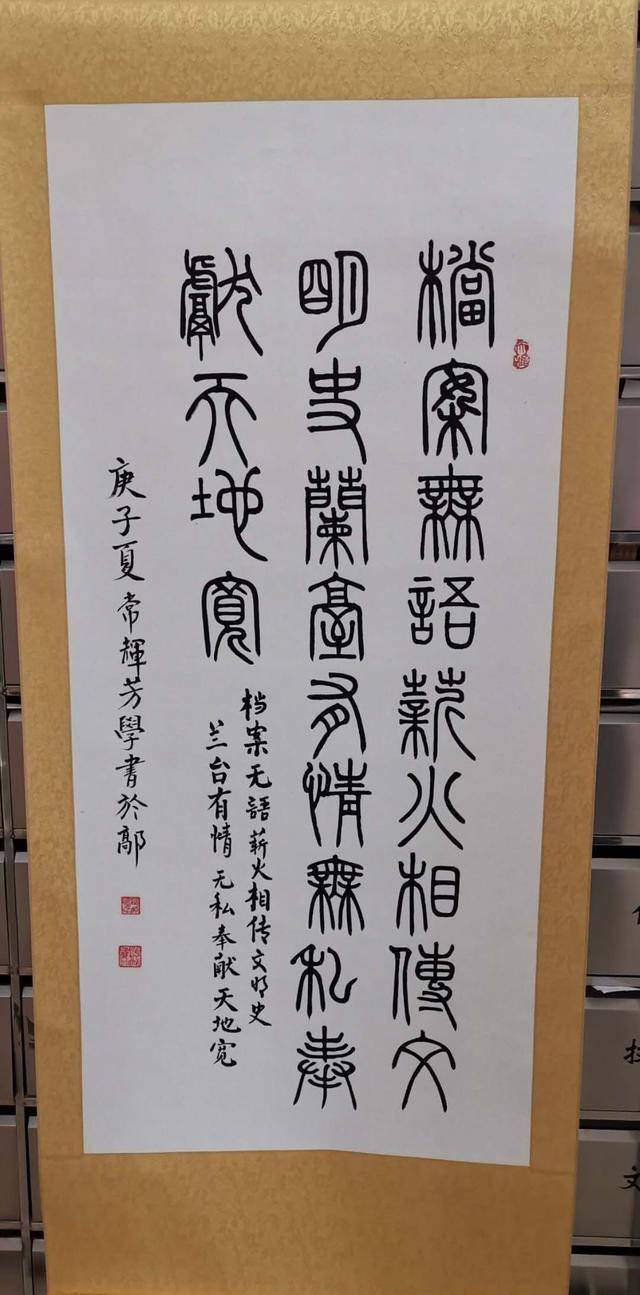 檔案無語薪火相傳文
明史蘭臺有情無私奉
獻天地寬
档案无語薪火相传文明史
兰台有情无私奉献天地宽
庚子夏常輝芳學書於鄗